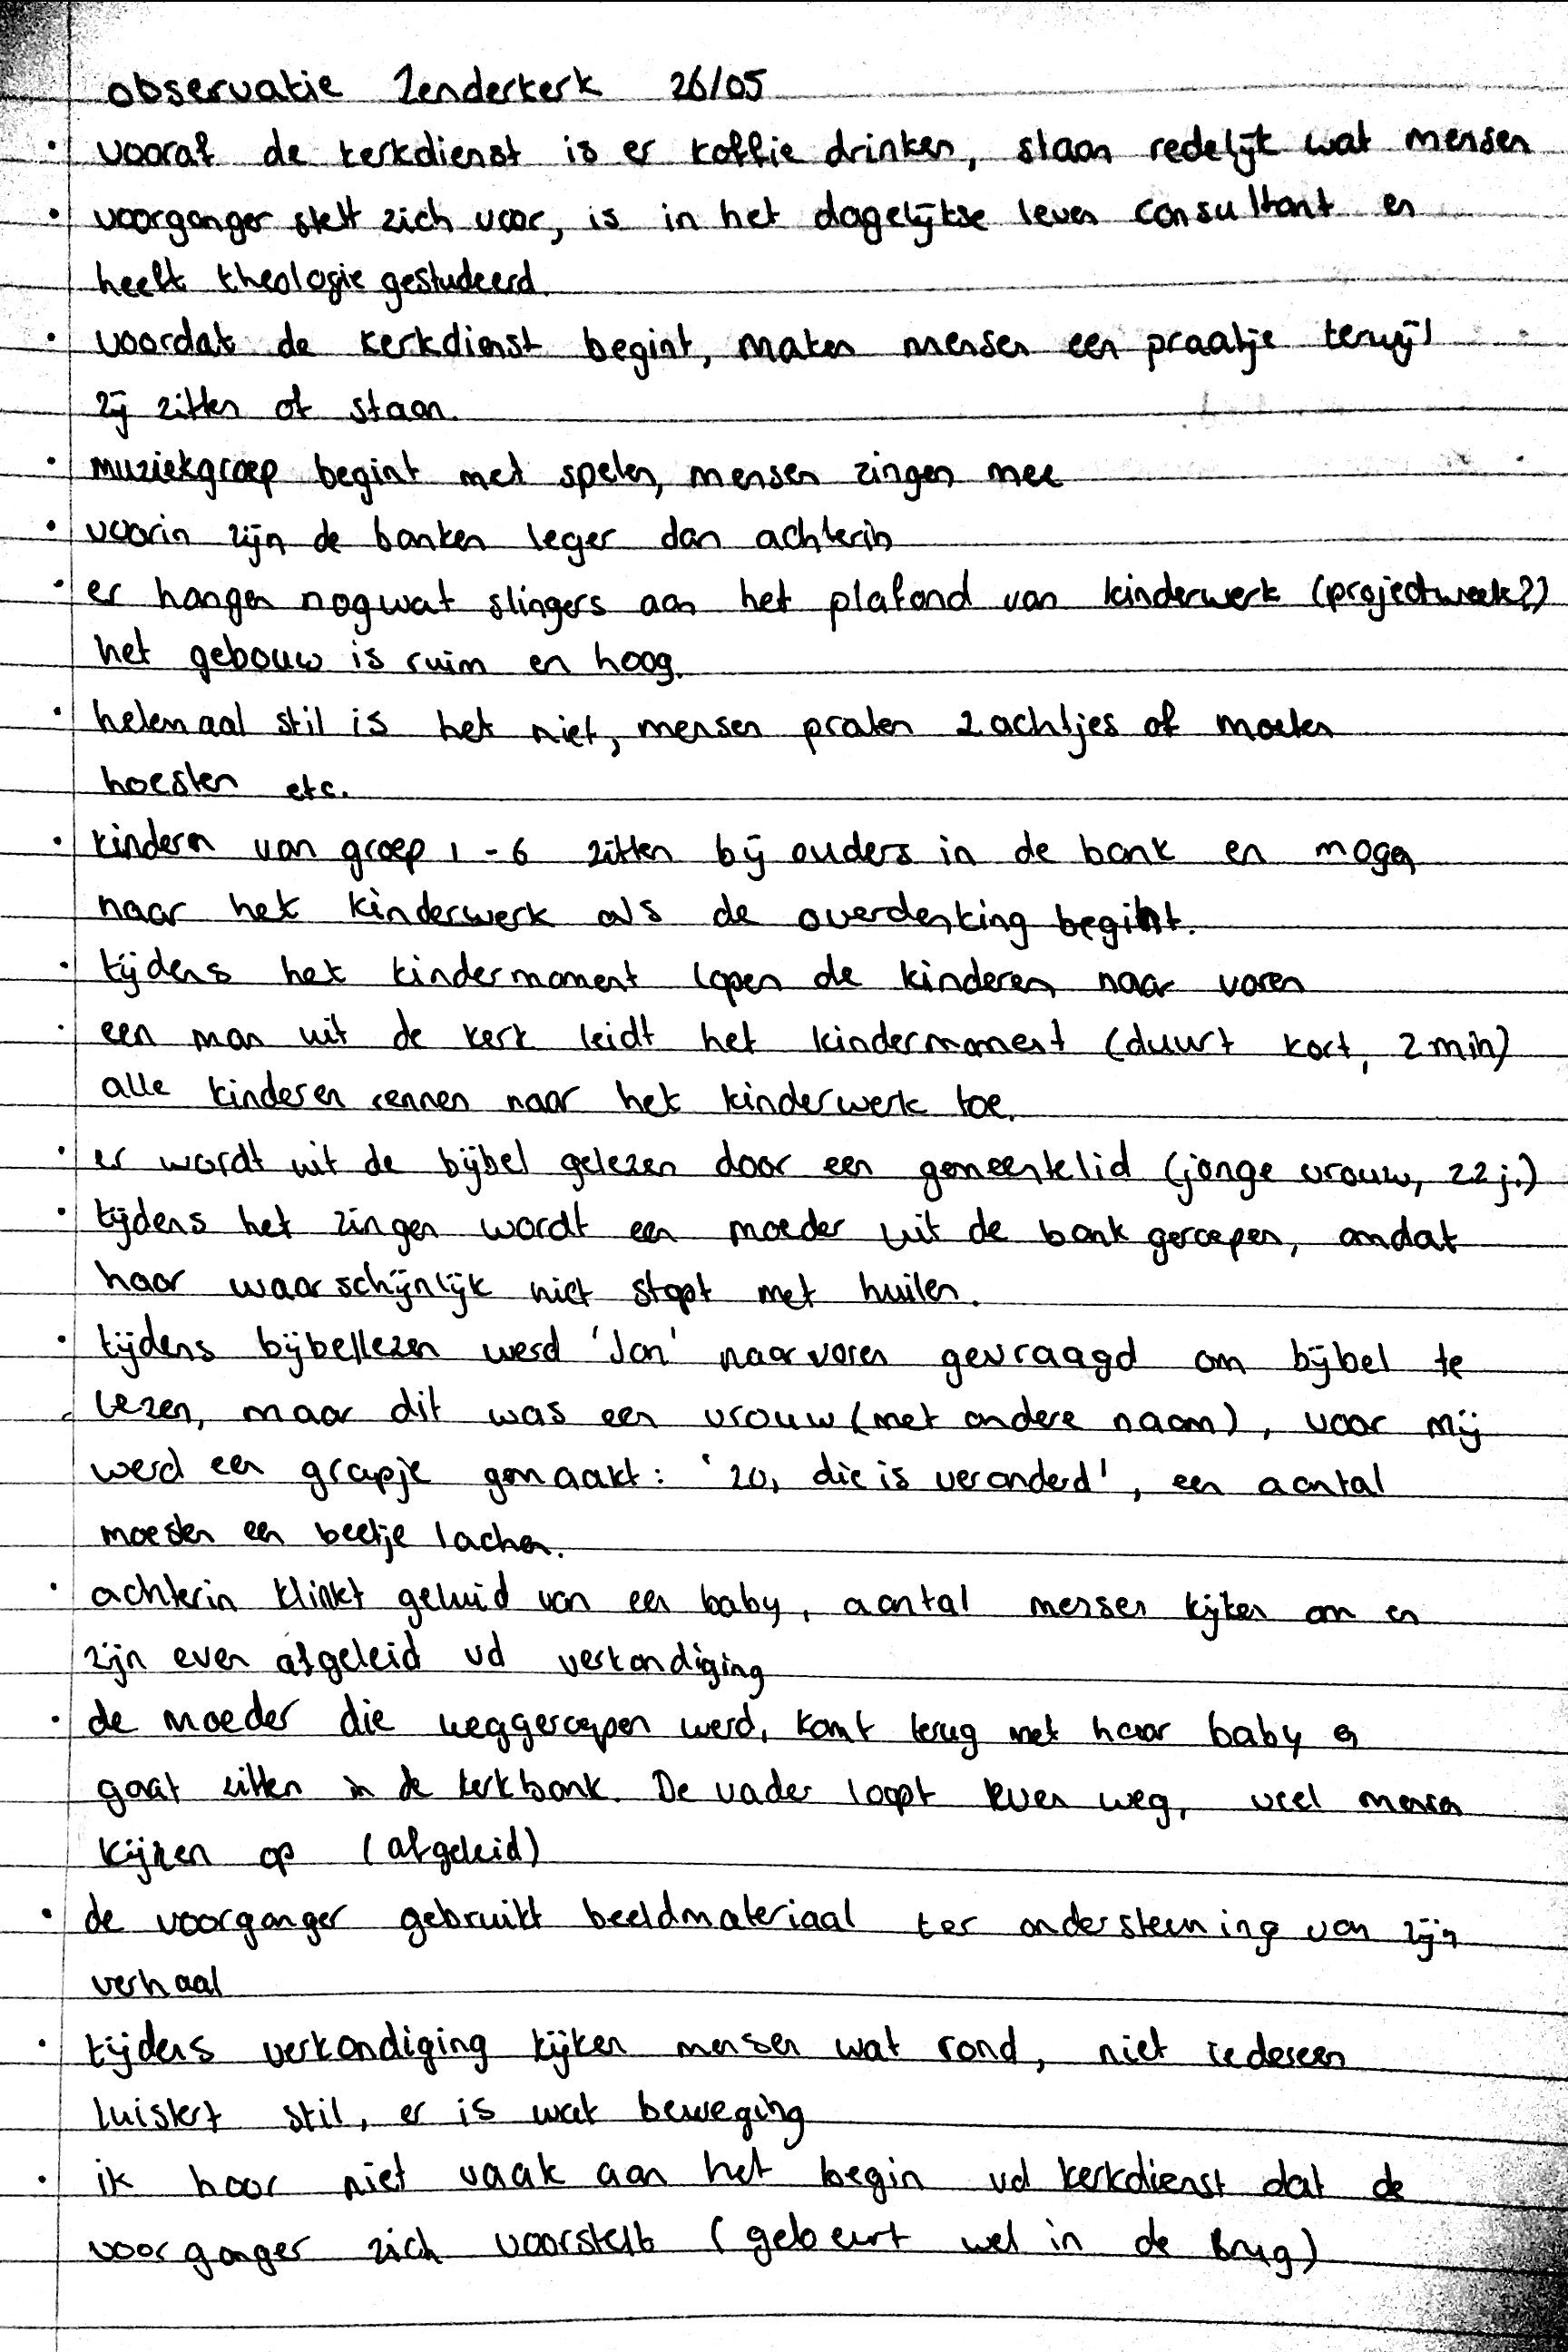 observatie Zenderkerk 26/05
• vooraf de kerkdienst is er koffie drinken, staan redelijk wat mensen
• voorganger stelt zich voor, is in het dagelijkse leven consultant en
heeft theologie gestudeerd.
• voordat de kerkdienst begint, maken mensen een praatje terwijl
zij zitten of staan.
• muziekgroep begint met spelen, mensen zingen mee
• voorin zijn de banken leger dan achterin
• er hangen nog wat slingers aan het plafond van kinderwerk (projectweek?)
het gebouw is ruim en hoog.
• helemaal stil is het niet, mensen praten zachtjes of moeten
hoesten etc.
• kindern van groep 1-6 zitten bij ouders in de bank en mogen
naar het kinderwerk als de overdenking begint.
• tijdens het kindermoment lopen de kinderen naar voren
• een man uit de kerk leidt het kindermoment (duurt kort, 2 min)
alle kinderen rennen naar het kinderwerk toe.
• er wordt uit de bijbel gelezen door een gemeentelid (jonge vrouw, 22 j.)
• tijdens het zingen wordt een moeder uit de bank geroepen, omdat
haar waarschijnlijk niet stopt met huilen.
• tijdens bijbellezen werd 'Jan' naar voren gevraagd om bijbel te
lezen, maar dit was een vrouw (met andere naam), voor mij
werd een grapje gemaakt: 'zo, die is veranderd', een aantal
moesten een beetje lachen.
• achterin klinkt geluid van een baby, aantal mensen kijken om en
zijn even afgeleid vd verkondiging
• de moeder die weggeroepen werd, komt terug met haar baby en
gaat zitten in de kerkbank. De vader loopt even weg, veel mensen
kijken op (afgeleid)
• de voorganger gebruikt beeldmateriaal ter ondersteuning van zijn
verhaal
• tijdens verkondiging kijken mensen wat rond, niet iedereen
luistert stil, er is wat beweging
• ik hoor niet vaak aan het begin vd kerkdienst dat de
voorganger zich voorstelt (gebeurt wel in de Brug)